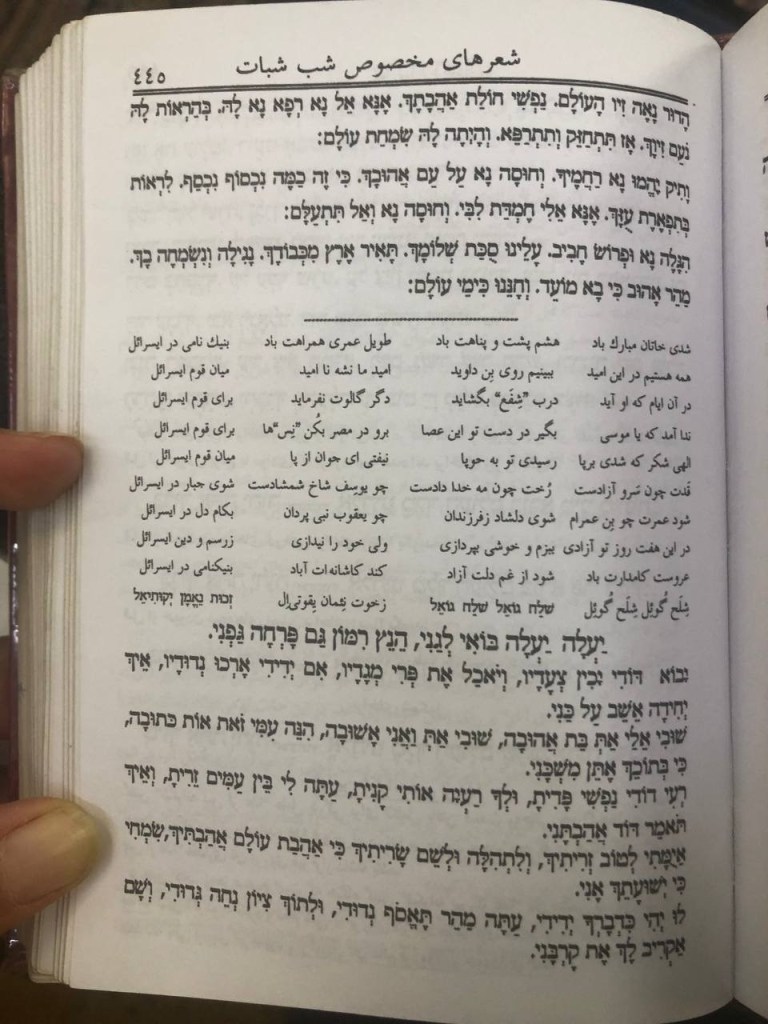 شعرهای مخصوص شب شبات ٤٤٥
הָדוּר נָאֶה זִיו הָעוֹלָם. נַפְשִׁי חוֹלַת אַהֲבָתָךְ. אָנָּא אֵל נָא רְפָא נָא לָהּ. בְּהַרְאוֹת לָהּ
נֹעַם זִיוָךְ. אָז תִּתְחַזֵּק וְתִתְרַפֵּא. וְהָיְתָה לָהּ שִׂמְחַת עוֹלָם:
וָתִיק יֶהֱמוּ נָא רַחֲמֶיךָ. וְחוּסָה נָא עַל עַם אֲהוּבָךְ. כִּי זֶה כַּמָּה נִכְסוֹף נִכְסַף. לִרְאוֹת
בְּתִפְאֶרֶת עֻזָּךְ. אָנָּא אֵלִי חֶמְדַּת לִבִּי. וְחוּסָה נָא וְאַל תִּתְעַלָּם:
הִגָּלֵה נָא וּפְרוֹשׂ חָבִיב. עָלֵינוּ סֻכַּת שְׁלוֹמָךְ. תָּאִיר אֶרֶץ מִכְּבוֹדָךְ. נָגִילָה וְנִשְׂמְחָה בָךְ.
מַהֵר אָהוּב כִּי בָא מוֹעֵד. וְחָנֵּנוּ כִּימֵי עוֹלָם:
شدی خاتان مبارك باد هشم پشت و پناهت باد طویل عمری همراهت باد بنیك نامی در ایسرائل
همه هستیم در این امید ببینیم روی بِن داوید امید ما نشه نا امید میان قوم ایسرائل
در آن ایام كه او آید درب "شِفَع" بگشاید دگر گالوت نفرماید برای قوم ایسرائل
ندا آمد كه یا موسی بگیر در دست تو این عصا برو در مصر بكُن "نِس"ها برای قوم ایسرائل
الهی شكر كه شدی برپا رسیدی تو به حوپا نیفتی ای جوان از پا میان قوم ایسرائل
قَدت چون سَرو آزادست رُخت چون مه خدا دادست چو یوسِف شاخ شمشادست شوی جبار در ایسرائل
شود عمرت چو بِن عمرام شوی دلشاد زفرزندان چو یعقوب نبی پردان بكام دل در ایسرائل
در این هفت روز تو آزادی ببزم و خوشی بپردازی ولی خود را نیندازی زرسم و دین ایسرائل
عروست كامدارت باد شود از غم دلت آزاد كند كاشانه‌ات آباد بنیكنامی در ایسرائل
شِلَح گُوئِل شِلَح گُوئِل שלח גואל שלח גואל زخوت نِئمان یِقوتی‌اِل זכות נאמן יקותיאל
יַעֲלֶה יַעֲלֶה בּוֹאִי לְגַנִּי, הֵנֵץ רִמּוֹן גַּם פָּרְחָה גַּפְנִי.
יָבוֹא דּוֹדִי יָכִין צְעָדָיו, וְיֹאכַל אֶת פְּרִי מְגָדָיו, אִם יְדִידִי אָרְכוּ נְדוּדָיו, אֵיךְ
יְחִידָה אֵשֵׁב עַל כַּנִּי.
שׁוּבִי אֵלַי אַתְּ בַּת אֲהוּבָה, שׁוּבִי אַתְּ וַאֲנִי אָשׁוּבָה, הִנֵּה עִמִּי זֹאת אוֹת כְּתוּבָה,
כִּי בְּתוֹכֵךְ אֶתֵּן מִשְׁכָּנִי.
רֵעִי דּוֹדִי נַפְשִׁי פָּדִיתָ, וּלְךָ רַעְיָה אוֹתִי קָנִיתָ, עַתָּה לִי בֵּין עַמִּים זֵרִיתָ, וְאֵיךְ
תֹּאמַר דּוֹד אֲהַבְתָּנִי.
אֲיֻמָּתִי לְטוֹב זֵרִיתִיךְ, וְלִתְהִלָּה וּלְשֵׁם שָׂרִיתִיךְ כִּי אַהֲבַת עוֹלָם אֲהַבְתִּיךְ, שִׂמְחִי
כִּי יְשׁוּעָתֵךְ אָנִי.
לוּ יְהִי כִּדְבָרְךָ יְדִידִי, עַתָּה מַהֵר תֶּאֱסֹף נְדוּדִי, וּלְתוֹךְ צִיּוֹן נְחֵה גְּדוּדִי, וְשָׁם
אַקְרִיב לָךְ אֶת קָרְבָּנִי.